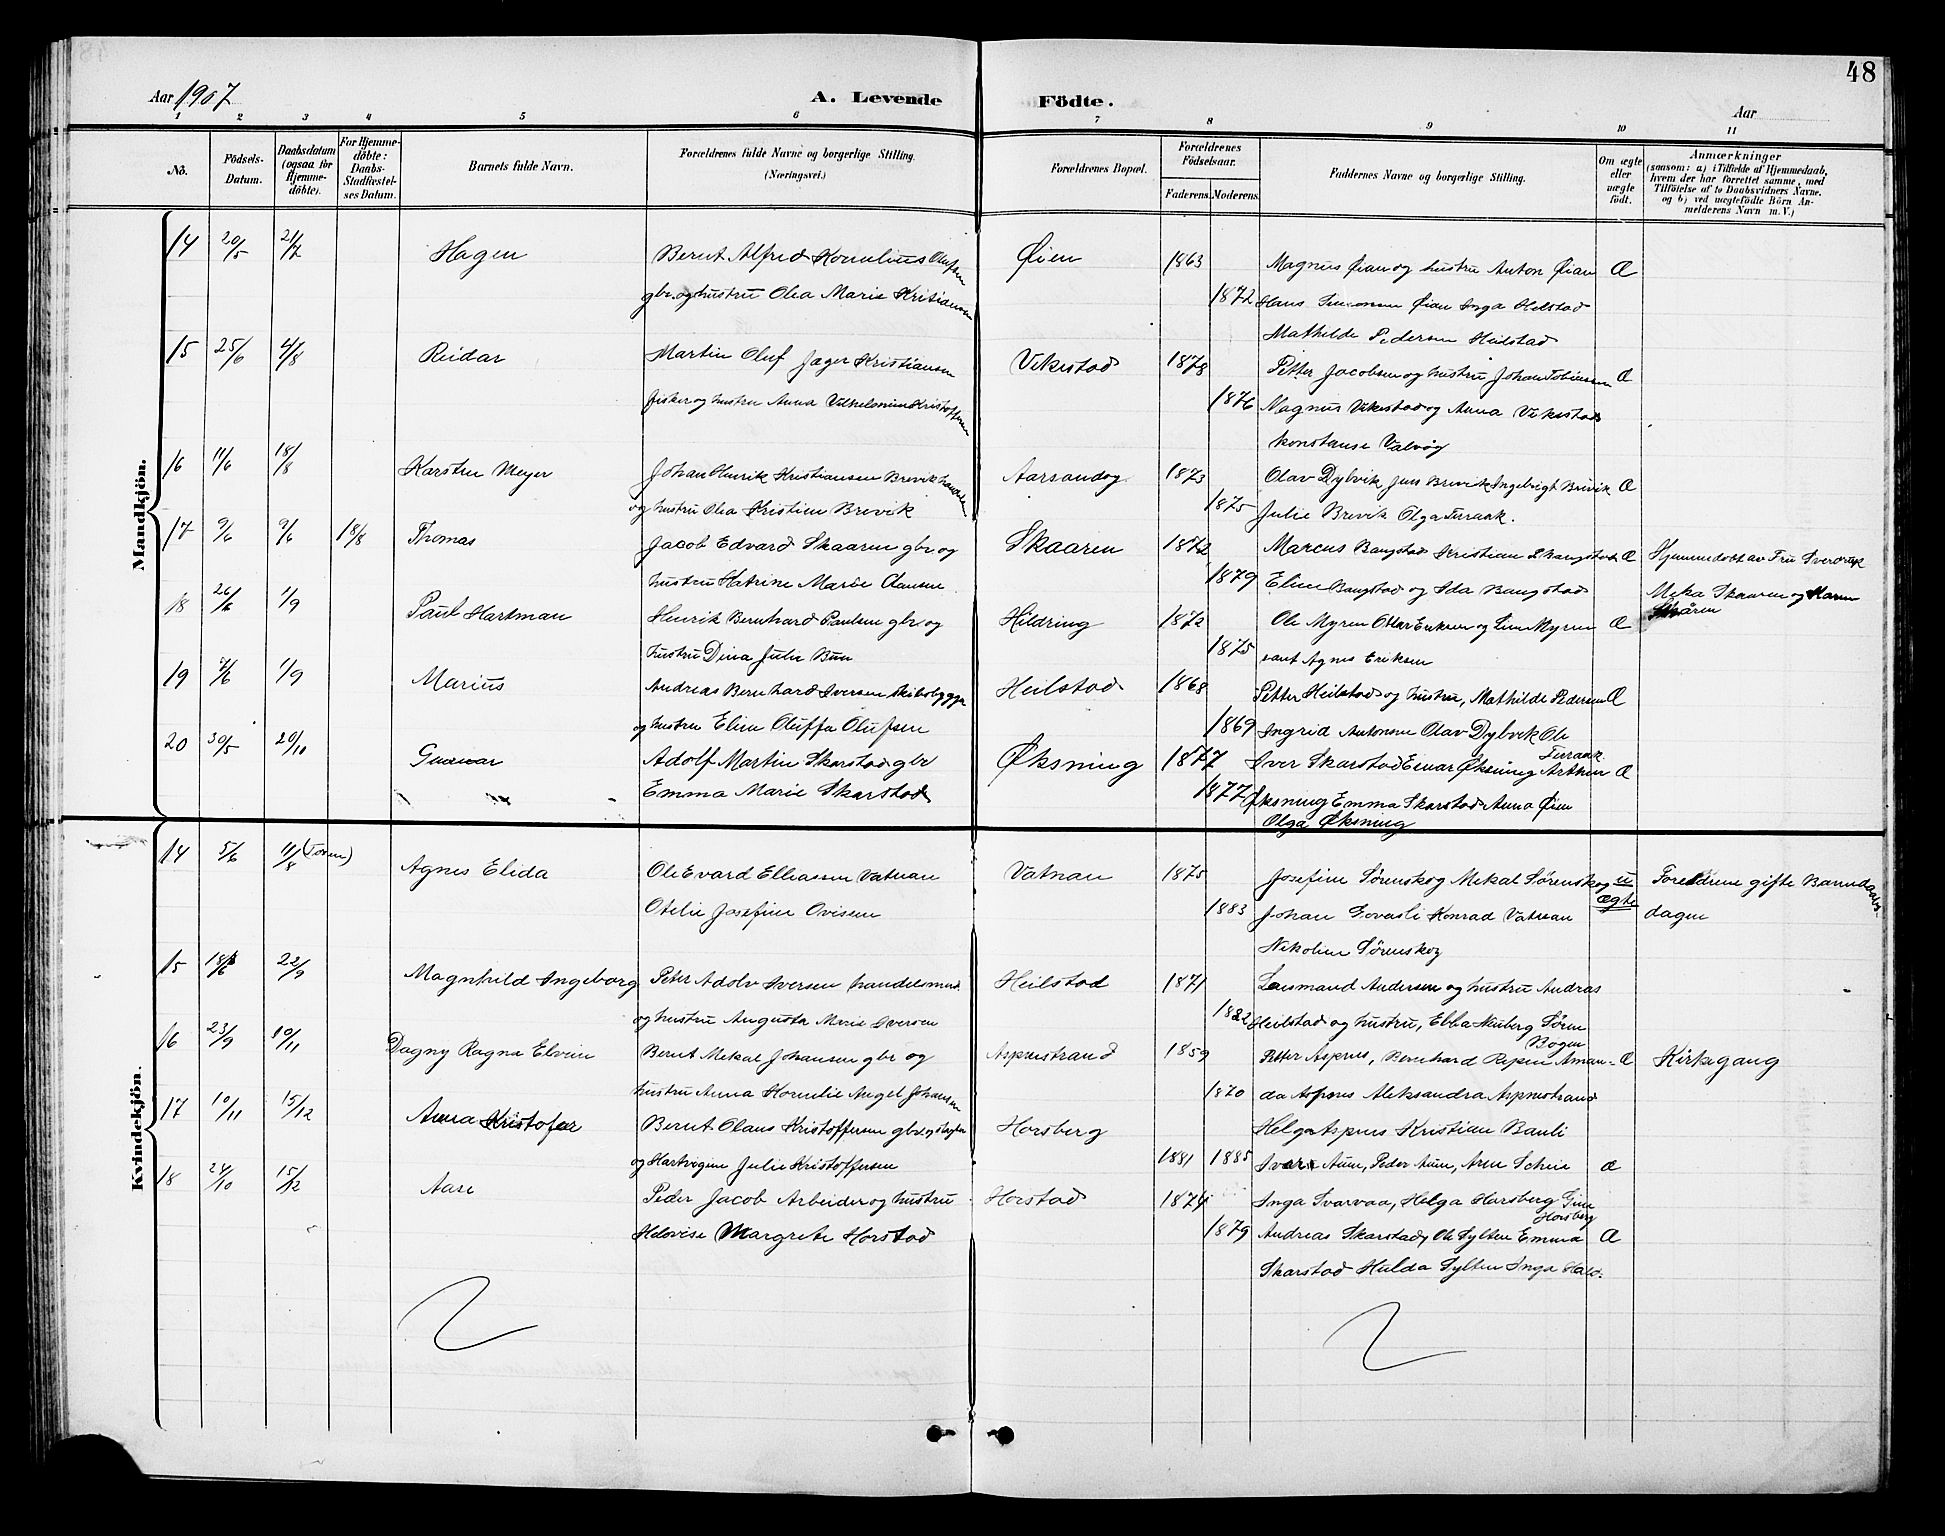 48
Aar 1907 A. Levende Födte. Aar
1 2 3 4 5 6 7 8 9 10 11
No. Födsels-Datum. Daabsdatum (ogsaa for Hjemme-döbte). For Hjemme-döbte: Daabs-Stadfæstel-ses Datum. Barnets fulde Navn. Forældrenes fulde Navne og borgerlige Stilling. (Næringsvei.) Forældrenes Bopæl. Forældrenes Födselsaar. Faderens. Moderens. Faddernes Navne og borgerlige Stilling. Om ægte eller uægte födt. Anmærkninger (saasom: a) i Tilfælde af Hjemmedaab, hvem der har forrettet samme, med Tilföielse af to Daabsvidners Navne. og b) ved uægtefödte Börn Anmelderens Navn m. V.)
Mandkjön.
14 20/5 21/7 Hagen Bernt Alfred Kornelius Olufsen Øien 1863 Magnus Øian og hustru Anton Øian Æ
gbr. og hustru Olea Marie Kristiansen 1872 Hans Simonsen Øian Inga Heilstad
Mathilde Pedersen Heilstad
15 25/6 4/8 Reidar Martin Oluf Jæger Kristiansen Vikestad 1878 Petter Jacobsen og hustru Johan Tobiassen Æ
fisker og hustru Anna Vilhelmine Kristoffersen 1876 Magnus Vikestad og Anna Vikestad
Konstanse Valvög
16 11/6 18/8 Karsten Meyer Johan Henrik Kristiansen Brevik Aarsandøy 1873 Olav Dybvik Jens Brevik Ingebrigt Brevik Æ
og hustru Olea Kristine Brevik 1875 Julie Brevik Olga Terraak.
17 9/6 9/6 18/8 Thomas Jacob Edvard Skaaren gbr og Skaaren 1872 Marcus Bangstad Kristian Bangstad Æ Hjemmedöbt av Fru Sverdrup
hustru Katrine Marie Olausen 1879 Eline Bangstad og Ida Bangstad Meka Skaaren og Karen
Skåren
18 26/6 1/9 Paul Hartman Henrik Bernhard Paulsen gbr og Hildring 1872 Ole Myren Ottar Eriksen og Line Myren Æ
hustru Dina Julie Bun 1875 samt Agnes Eriksen
19 7/6 1/9 Marius Andreas Bernhard Iversen skibsbygger Heilstad 1868 Petter Heilstad og hustru, Mathilde Pedersen Æ
og hustru Eline Oluffa Olufsen 1869 Ingrid Antonsen Olav Dybvik Ole
Terraak
20 30/5 20/10 Gunnar Adolf Martin Skarstad gbr Øksning 1877 Iver Skarstad Einar Øksning Arthur Æ
Emma Marie Skarstad 1877 Øksning Emma Skarstad Anna Øien
Olga Øksning
Kvindekjön.
14 5/6 11/8 (Foren) Agnes Elida Ole Evard Elleassen Vatnan Vatnan 1875 Josefine Sørenskog Mekal Sørenskog u ægte Foreldrene gifte Barndaabs
Otelie Josefine Ovisen 1883 Johan Govasli Konrad Vatnan dagen
Nikoline Sørenskog
15 18/6 22/9 Magnhild Ingeborg Peter Adolv Iversen handelsmand Heilstad 1871 Lensmand Andersen og hustru Andras
og hustru Augusta Marie Iversen 1882 Heilstad og hustru, Ebba Neuberg Søren
Bogen
16 23/9 10/11 Dagny Ragna Elvine Bernt Mekal Johansen gbr og Aspnestrand 1859 Petter Aspnes, Bernhard Repen Aman- Æ Kirkegang
hustru Anna Kornelie Angel Johansen 1870 da Aspnes Aleksandra Aspnestrand
Helga Aspnes Kristian Bauli
17 10/11 15/12 Anna Kristofar Bernt Olaus Kristoffersen gbr Horsberg
og Hartvigine Julie Kristoffersen 1881 1885 Aune, Peder Aune, Aren Scheie Æ
18 24/10 15/12 Aase Peder Jacob Arbeider og hustru Horstad 1874 Inga Svarvaa, Helga Horsberg Gine
Horsberg
Helovise Margrete Horstad 1879 Andreas Skarstad, Ole Sylten Emma Æ
Skarstad Hulda Sylten Inga Hald.